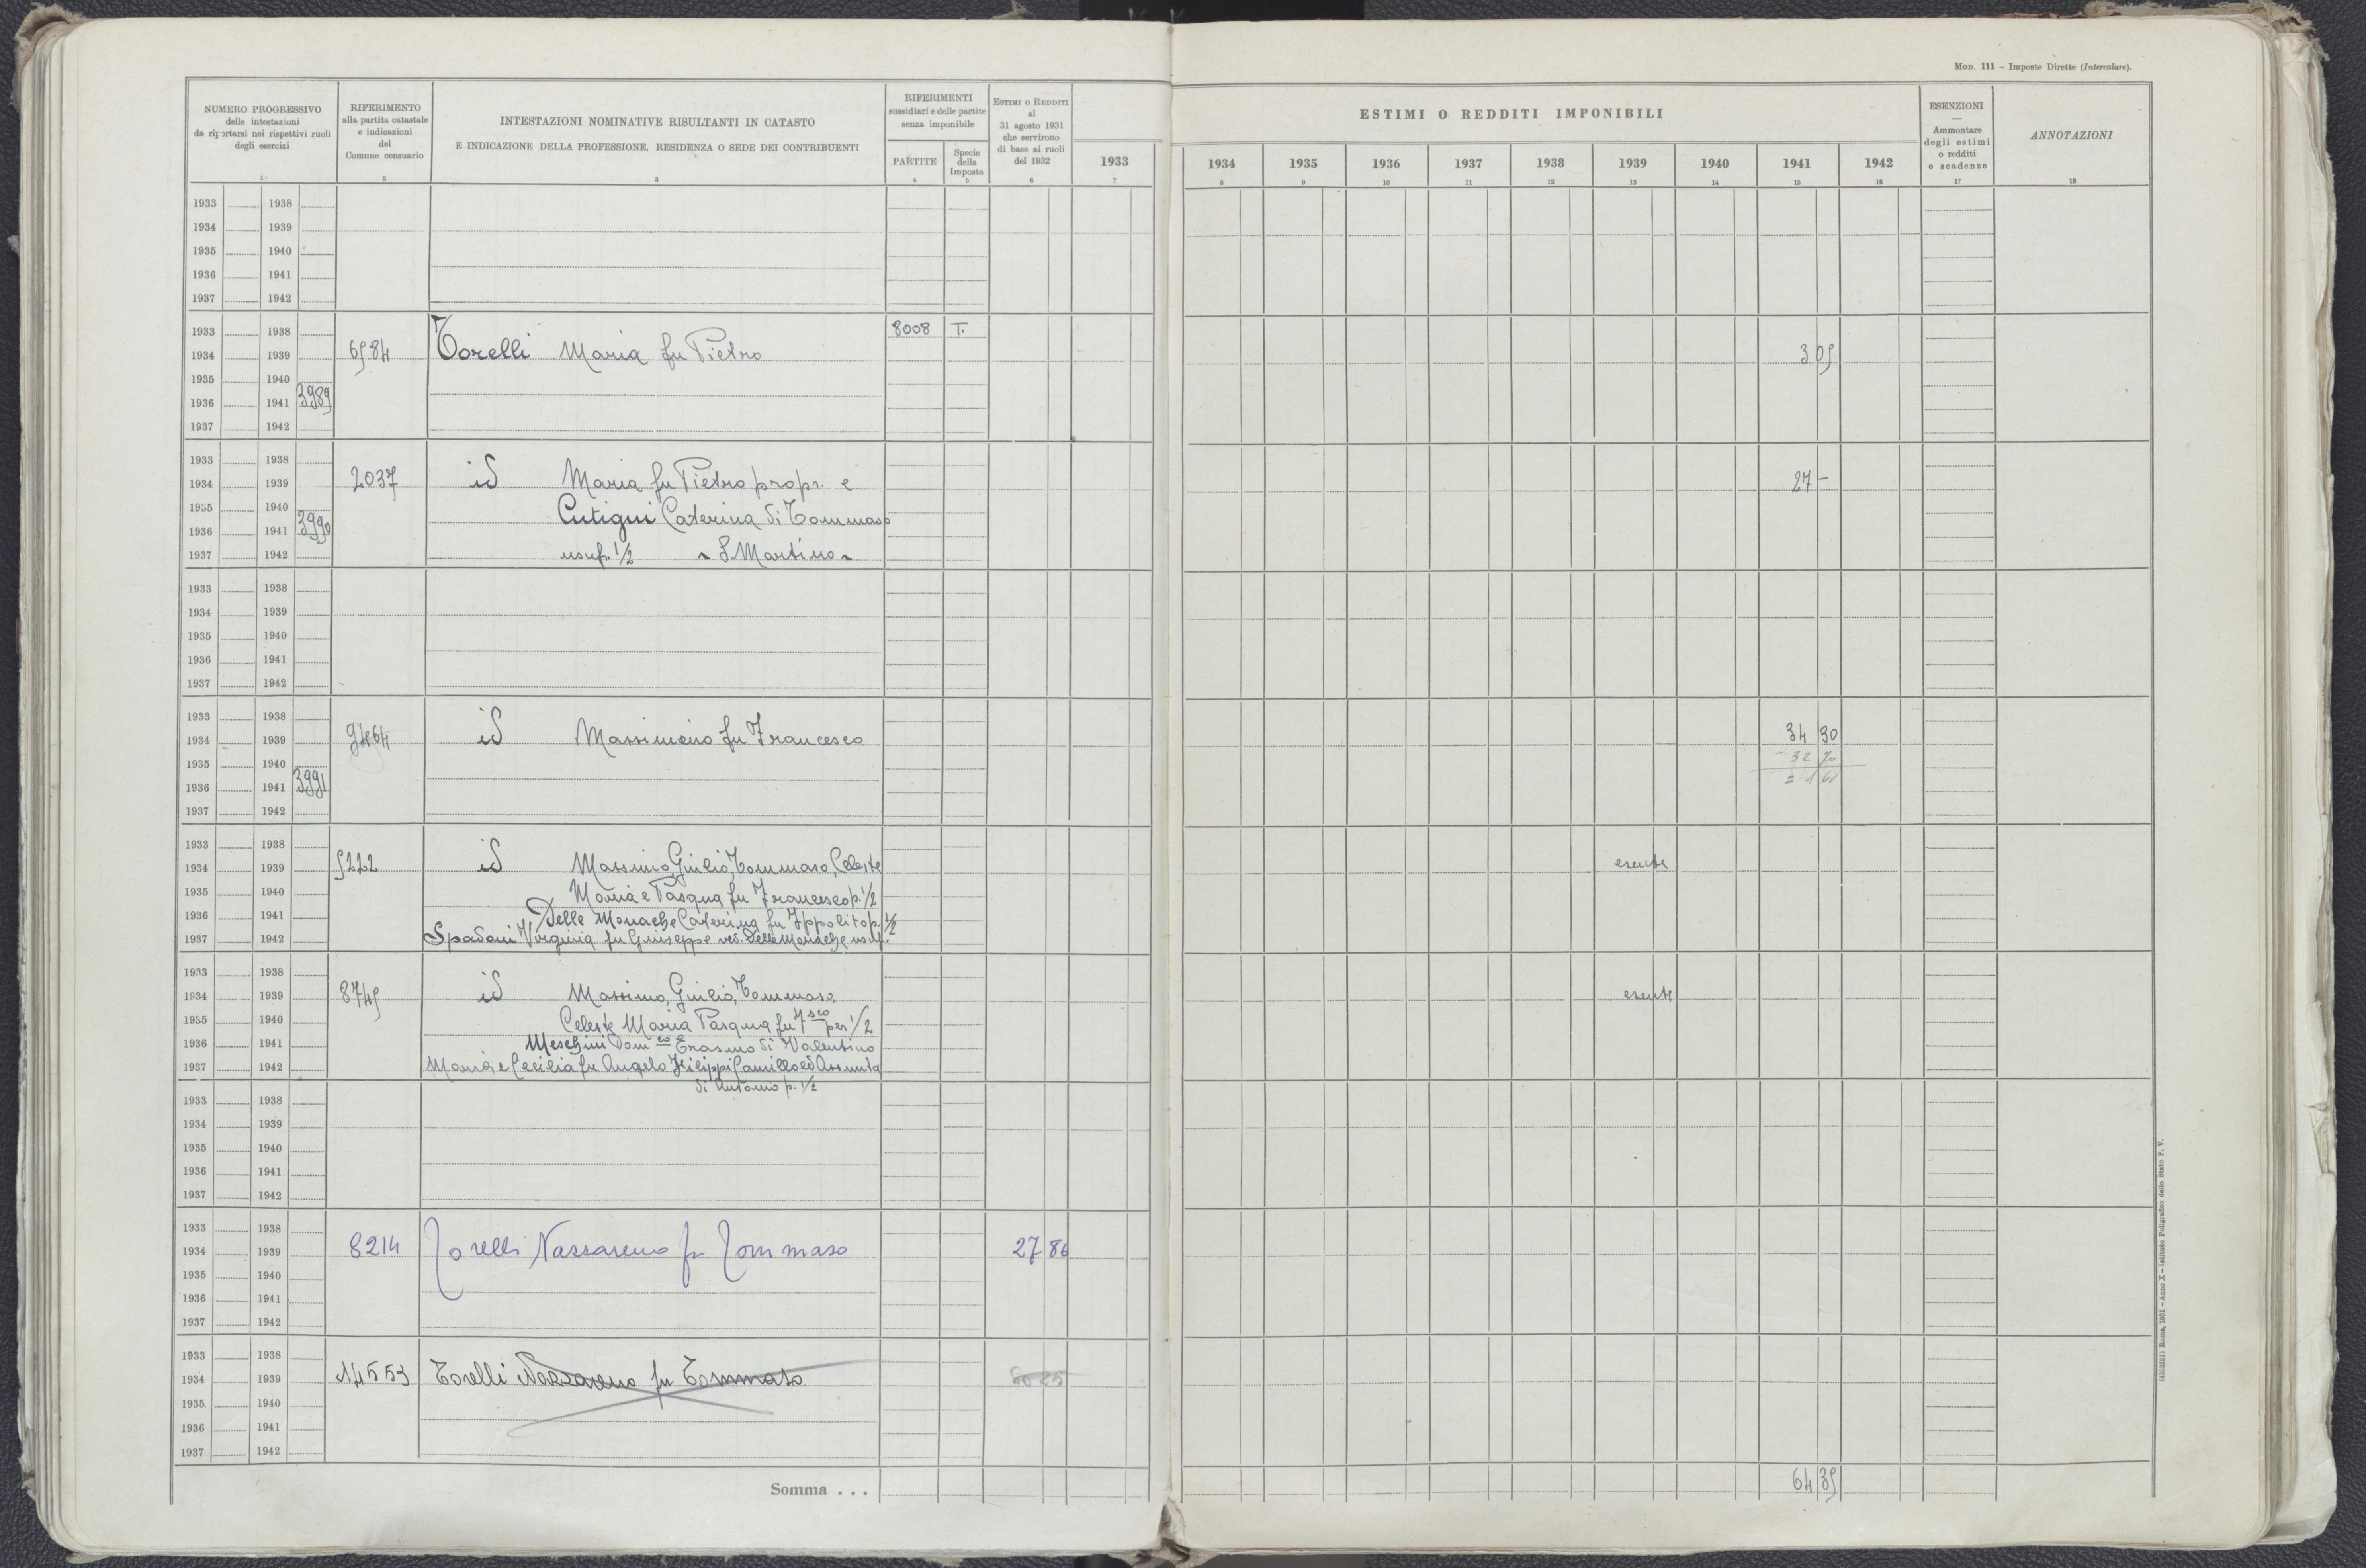 MOD. 111 – Imposte Dirette (Intercalare).
NUMERO PROGRESSIVO
delle intestazioni
da riportarsi nei rispettivi ruoli
degli esercizi
1
RIFERIMENTO
alla partita catastale
e indicazioni
del
Comune censuario
2
INTESTAZIONI NOMINATIVE RISULTANTI IN CATASTO
E INDICAZIONE DELLA PROFESSIONE, RESIDENZA O SEDE DEI CONTRIBUENTI
3
RIFERIMENTI
sussidiari e delle partite
senza imponibile
PARTITE
4
Specie
della
Imposta
5
ESTIMI O REDDITI
al
31 agosto 1931
che servirono
di base ai ruoli
del 1932
6
ESTIMI O REDDITI IMPONIBILI
1933 1934 1935 1936 1937 1938 1939 1940 1941 1942
7 8 9 10 11 12 13 14 15 16
ESENZIONI
—
Ammontare
degli estimi
o redditi
e scadenze
17
ANNOTAZIONI
18
1933 1938
1934 1939
1935 1940
1936 1941
1937 1942
1933 1938 8008 T.
1934 1939 6984 Torelli Maria fu Pietro 3 09
1935 1940
1936 1941 3989
1937 1942
1933 1938
1934 1939 2037 id Maria fu Pietro propr. e 27 –
1935 1940 Cutigni Caterina di Tommaso
1936 1941 3990
1937 1942 usuf. 1/2 ~ S Martino ~
1933 1938
1934 1939
1935 1940
1936 1941
1937 1942
1933 1938
1934 1939 9464 id Massimino fu Francesco 34 30
1935 1940 - 32 70
1936 1941 3991 = 1 60
1937 1942
1933 1938
1934 1939 5222 id Massimo, Giulio, Tommaso, Celeste esente
1935 1940 Maria e Pasqua fu Francesco p. 1/2
1936 1941 Delle Monache Caterina fu Ippolito p. 1/2
1937 1942 Spadoni Virginia fu Giuseppe ved. Delle Monache usuf.
1933 1938
1934 1939 8749 id Massimo, Giulio, Tommaso esente
1935 1940 Celeste Maria Pasqua fu Fsco per 1/2
1936 1941 Meschini Domco e Erasmo di Valentino
1937 1942 Maria e Cecilia fu Angelo Filippi Camillo ed Assunta
di Antonio p. 1/2
1933 1938
1934 1939
1935 1940
1936 1941
1937 1942
1933 1938
1934 1939 8214 Torelli Nazzareno fu Tommaso 27 86
1935 1940
1936 1941
1937 1942
1933 1938
1934 1939 14553 Torelli Nazzareno fu Tommaso
1935 1940
1936 1941
1937 1942
Somma . . . 64 39
(4100531) Roma, 1931 – Anno X – Istituto Poligrafico dello Stato P. V.